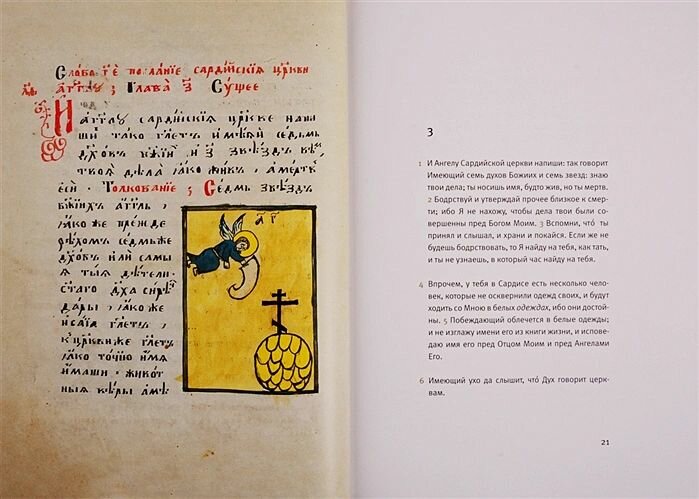 Слово посланїе сардїйскїѧ цр҃кви
агг҃лу ; Глава Сущее
И агг҃лу сардїйскїѧ цр҃кве напи
ши тако гл҃етъ имѣѧй седмь
дх҃овъ бж҃їи и з҃ звѣздъ вѣм
твоѧ дѣла ꙗко живъ, а мертвъ
еси · Толкованїе ; Седмь звѣздъ
бж҃їихъ агг҃лъ,
ꙗкоже прежде
рѣхомъ седмь же
дх҃овъ или самы
ѧ тыѧ дѣтели
ст҃аго дх҃а сирѣ
дары, ꙗкоже
исаїѧ гл҃етъ,
к цр҃кви же гл҃етъ
ꙗко точїю имѧ
имаши · живот
ныѧ вѣры
3
1 И Ангелу Сардийской церкви напиши: так говорит
Имеющий семь духов Божиих и семь звезд: знаю
твои дела; ты носишь имя, будто жив, но ты мертв.
2 Бодрствуй и утверждай прочее близкое к смер-
ти; ибо Я не нахожу, чтобы дела твои были со-
вершенны пред Богом Моим. 3 Вспомни, что́ ты
принял и слышал, и храни и покайся. Если же не
будешь бодрствовать, то Я найду на тебя, как тать,
и ты не узнаешь, в который час найду на тебя.
4 Впрочем, у тебя в Сардисе есть несколько чело-
век, которые не осквернили одежд своих, и будут
ходить со Мною в белых одеждах, ибо они достой-
ны. 5 Побеждающий облечется в белые одежды;
и не изглажу имени его из книги жизни, и испове-
даю имя его пред Отцом Моим и пред Ангелами
Его.
6 Имеющий ухо да слышит, что́ Дух говорит церк-
вам.
21